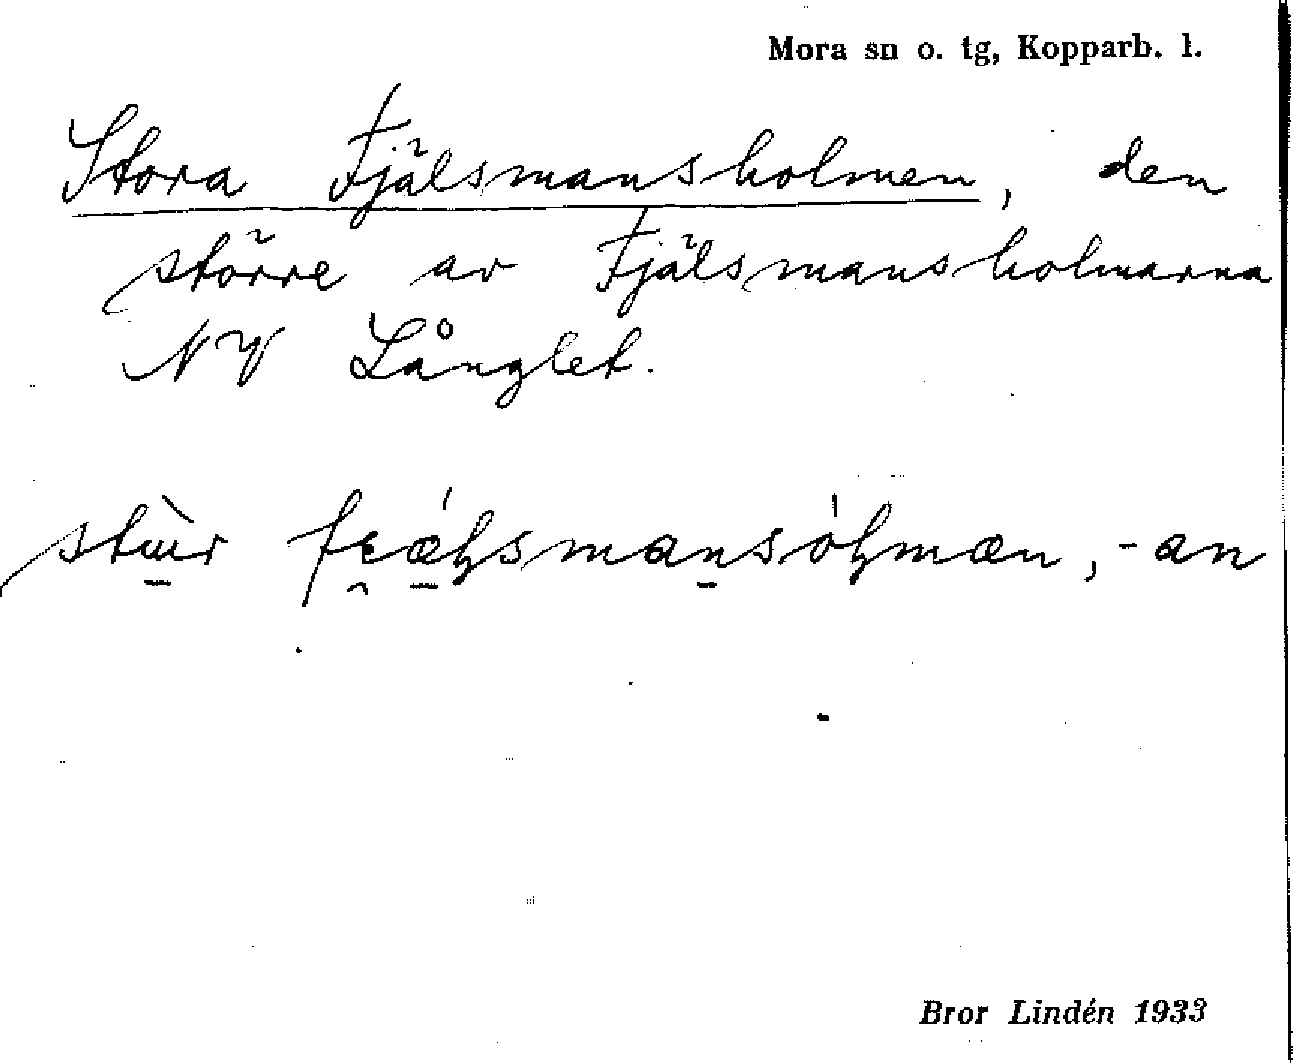 Mora sn o. tg, Kopparb. l.
Stora Fjälsmansholmen, den
större av Fjälsmansholmarna
NV Långlet.
-an
Bror Lindén 1933